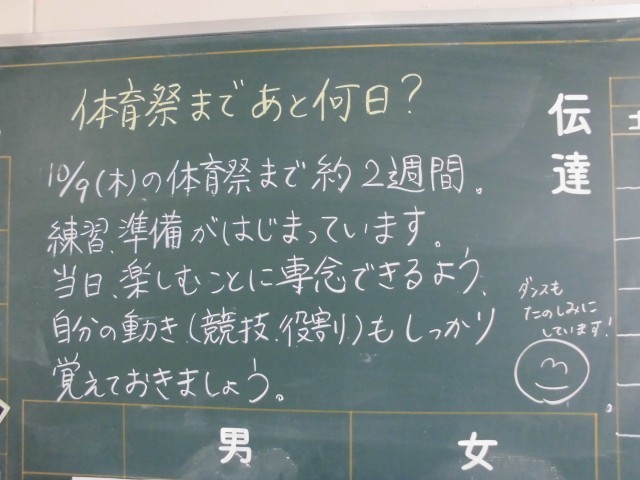 体育祭まであと何日?
伝達
10/9(木)の体育祭まで約2週間。
練習、準備がはじまっています。
当日、楽しむことに専念できるよう、
自分の動き(競技、役割)もしっかり
覚えておきましょう。
ダンスも
たのしみに
しています!
男
女